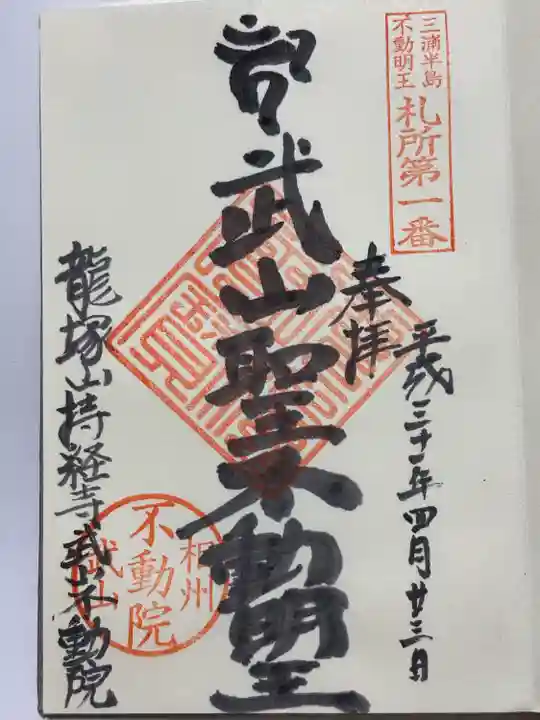 三浦半島
不動明王
札所第一番
奉拝
平成三十一年四月廿三日
武山聖不動明王
龍塚山持経寺武山不動院
相州
不動院
武山